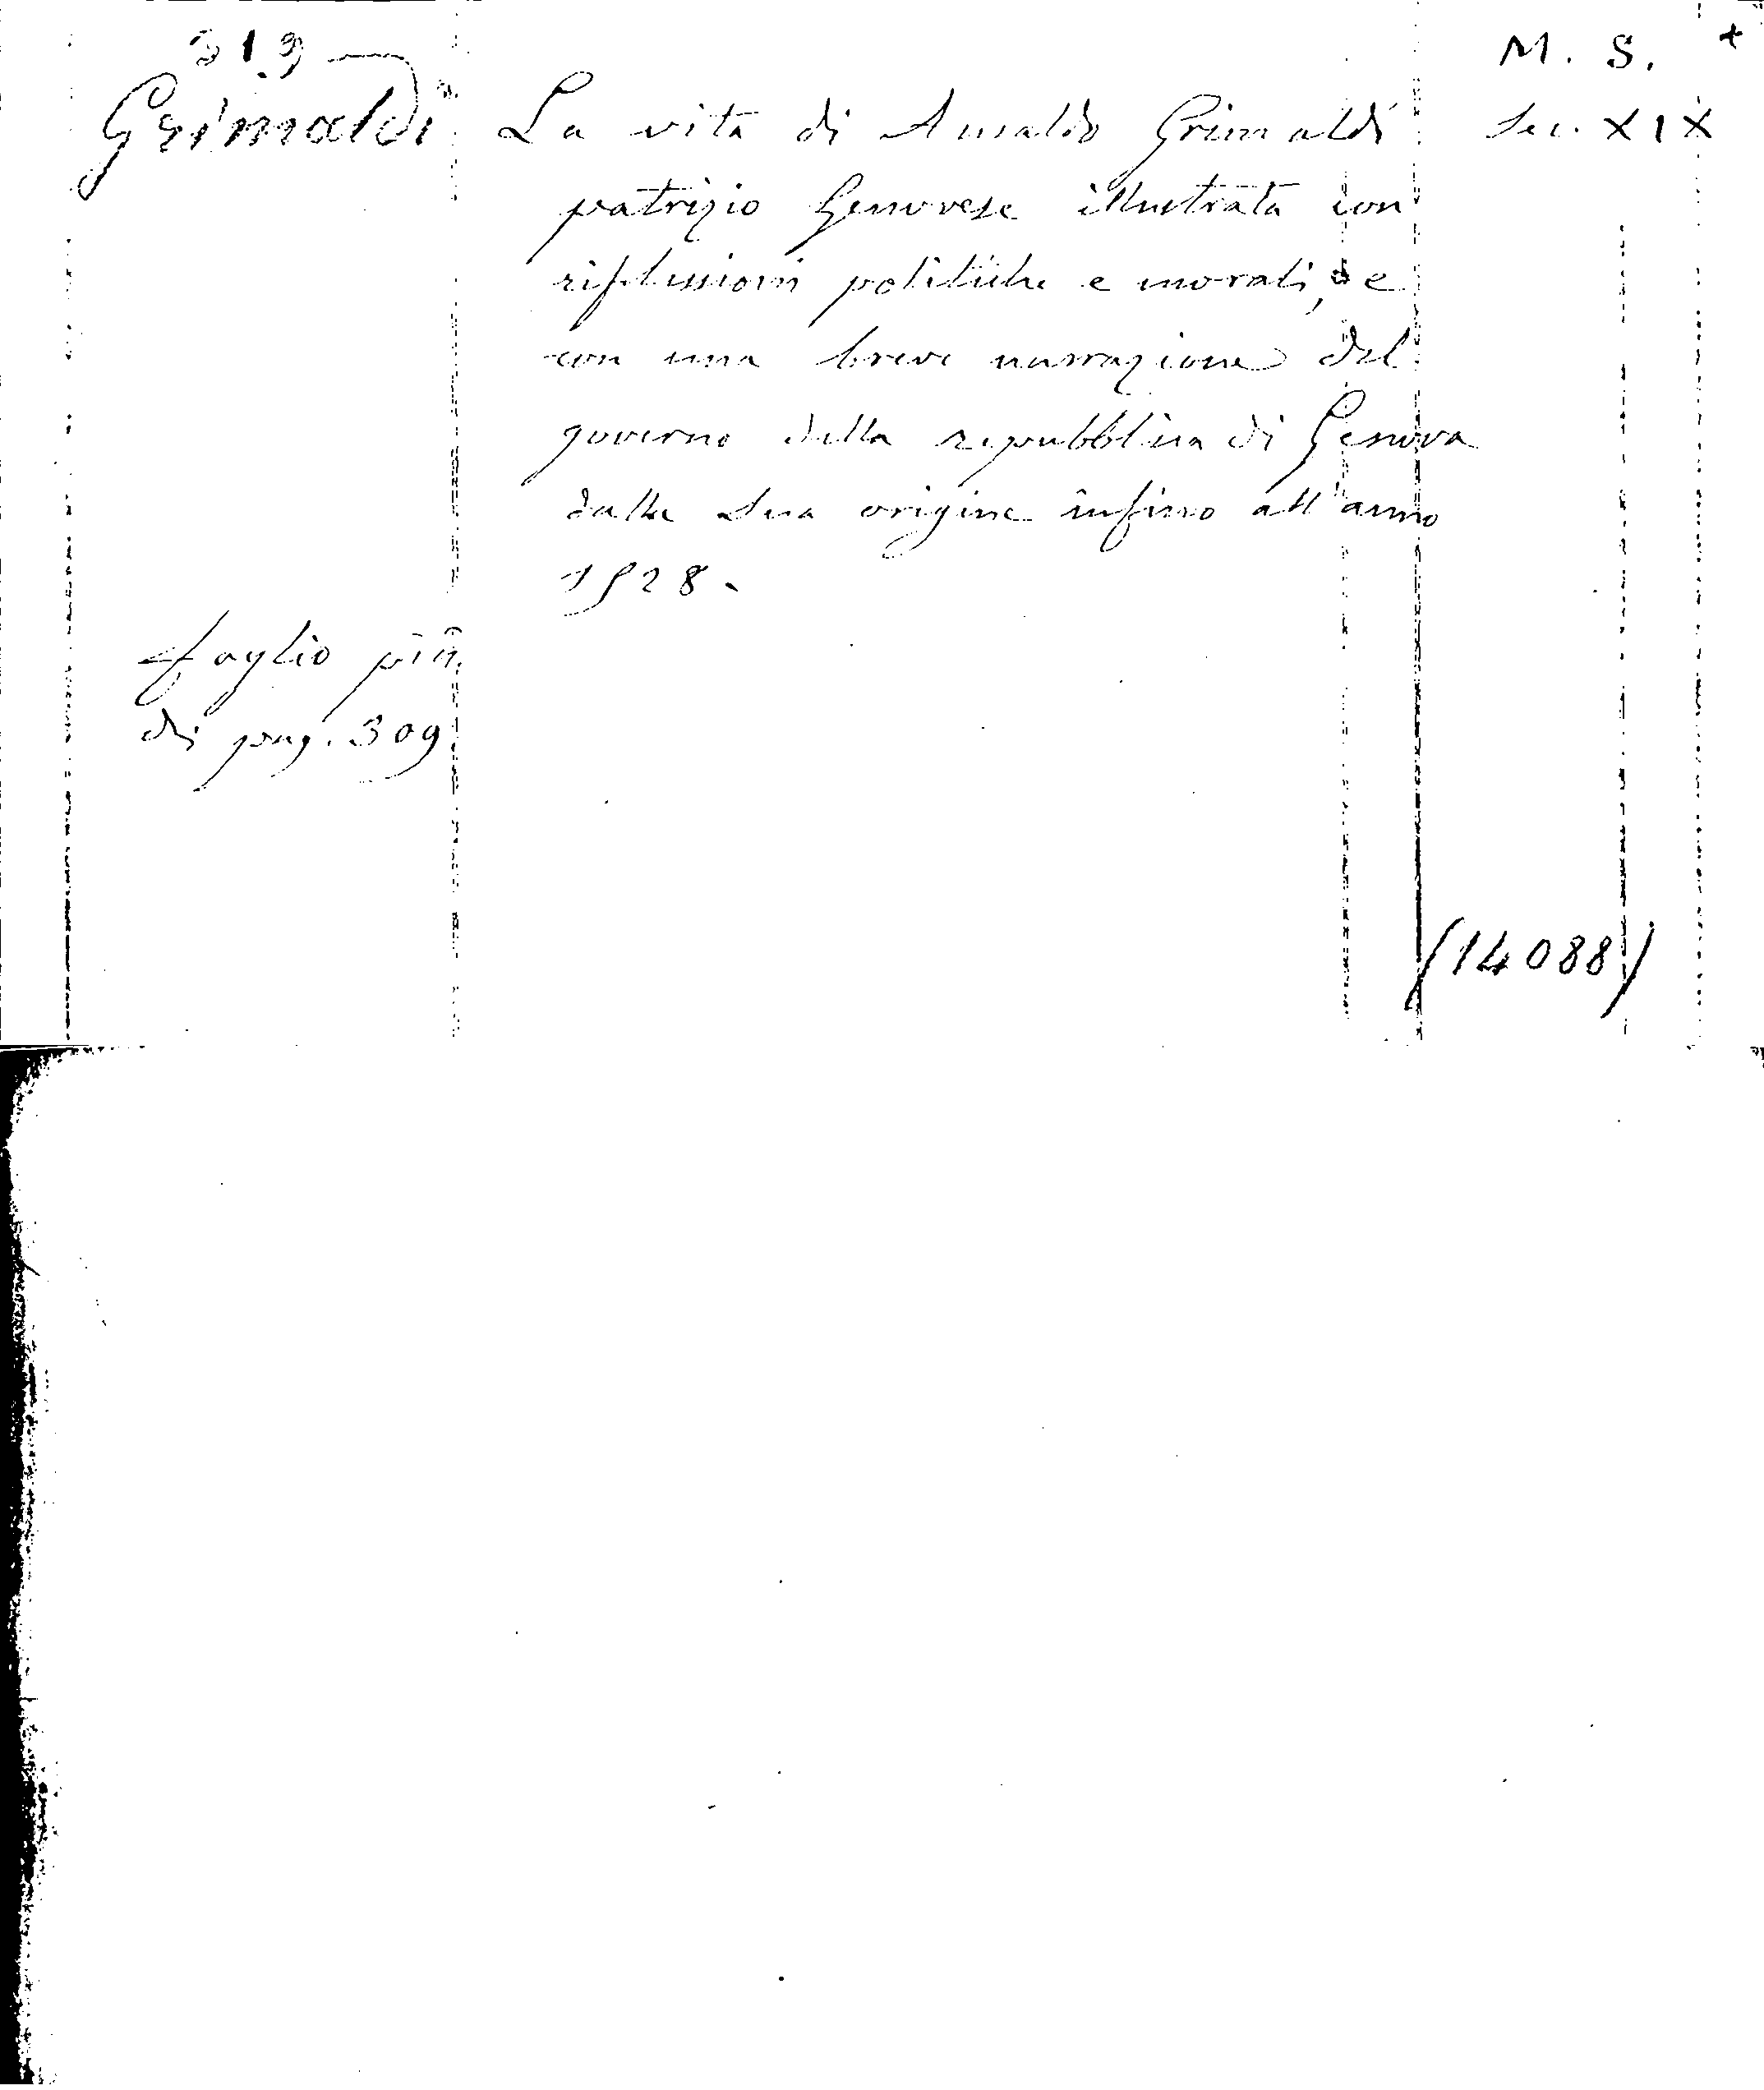 319
M. S. +
Grimaldi
La vita di Ansaldo Grimaldi
Sec. XIX
patrizio Genovese illustrata con
riflessioni politiche e morali, e
con una breve narrazione del
governo della repubblica di Genova
dalla sua origine infino all'anno
1528.
foglio piu
di pag. 309
(14088)